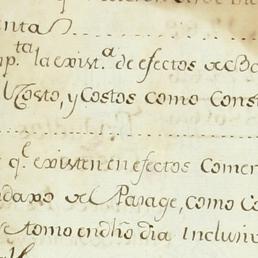 enta
mp.ta la exist.a de efectos de B
l Costo, y Costos como Const
q.e existen en efectos Comer
del Parage, como Co
se tomo en dho dia inclusiv